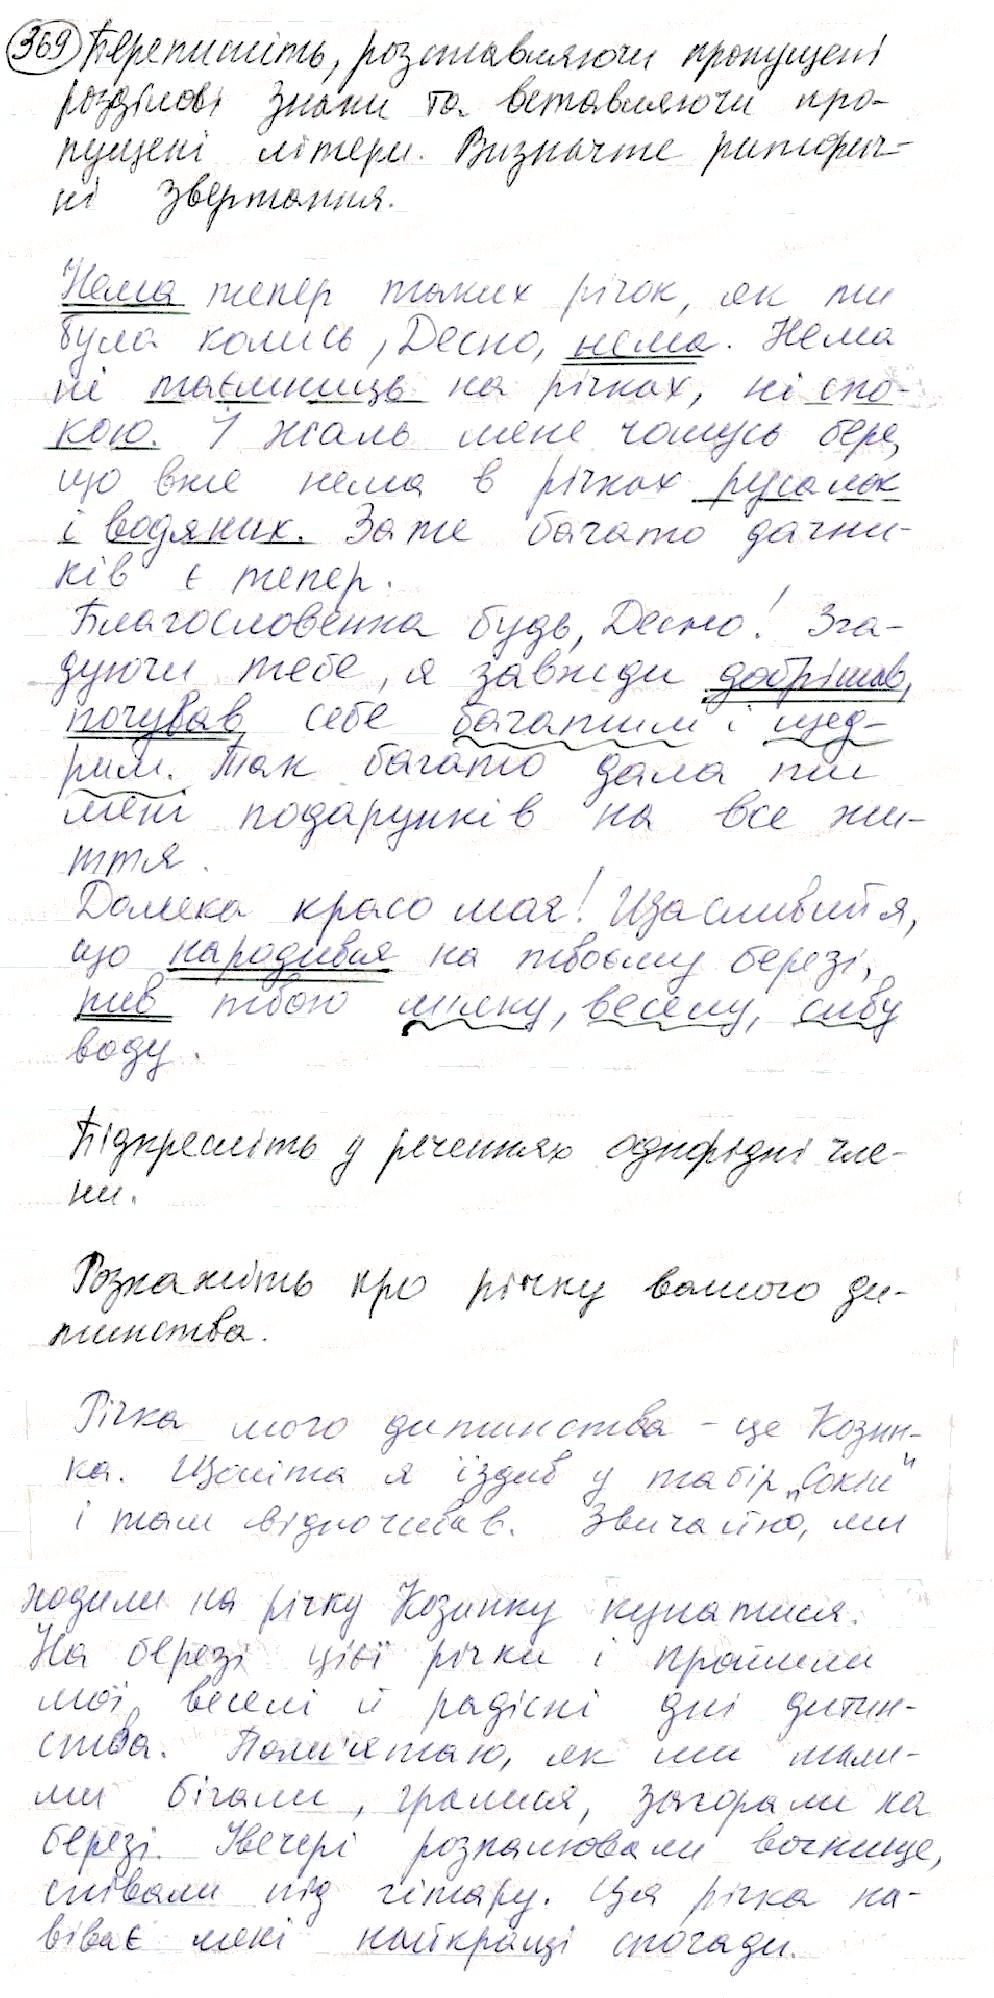 369 Перепишіть, розставляючи пропущені
розділові знаки та вставляючи про-
пущені літери. Визначте риторич-
ні звертання.
Нема тепер таких річок, як ти
була колись, Десно, нема. Нема
ні таємниць на річках, ні спо-
кою. І жаль мене чомусь бере,
що вже нема в річках русалок
і водяних. Зате багато дачни-
ків є тепер.
Благословенна будь, Десно! Зга-
дуючи тебе, я завжди добрішав,
почував себе багатим і щед-
рим. Так багато дала ти
мені подарунків на все жи-
ття.
Далека красо моя! Щасливий я,
що народився на твоєму березі,
пив твою м'яку, веселу, сиву
воду.
Підкресліть у реченнях однорідні чле-
ни.
Розкажіть про річку вашого ди-
тинства.
Річка мого дитинства - це Козин-
ка. Щоліта я їздив у табір „Сокіл"
і там відпочивав. Звичайно, ми
ходили на річку Козинку купатися.
На березі цієї річки і пройшли
мої веселі й радісні дні дитин-
ства. Пам'ятаю, як ми мали-
ми бігали, гралися, загорали на
березі. Увечері розпалювали вогнище,
співали під гітару. Ця річка на-
віває мені найкращі спогади.